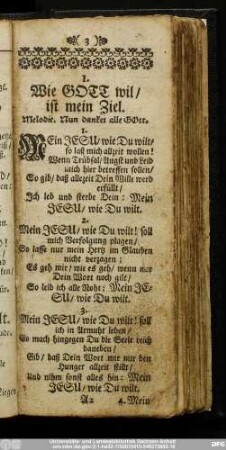 ( 3 )
1.
Wie GOTT wil/
ist mein Ziel.
Melodie. Nun dancket alle GOtt.
1.
MEin JESU/ wie Du wilt/
so laß mich allzeit wollen!
Wenn Trübsal/ Angst und Leid
mich hier betreffen sollen/
So gib/ daß allezeit Dein Wille werd
erfüllt/
Ich leb und sterbe Dein: Mein
JESU/ wie Du wilt.
2.
Mein JESU/ wie Du wilt! soll
mich Verfolgung plagen/
So lasse nur mein Hertz im Glauben
nicht verzagen;
Es geh mir/ wie es geh/ wenn nur
Dein Wort noch gilt/
So leid ich alle Noht: Mein JE-
SU/ wie Du wilt.
3.
Mein JESU/ wie Du wilt! soll
ich in Armuht leben/
So mach hingegen Du die Seele reich
daneben/
Gib/ daß Dein Wort mir nur den
Hunger allzeit stillt/
Und nihm sonst alles hin: Mein
JESU/ wie Du wilt.
A2 4. Mein